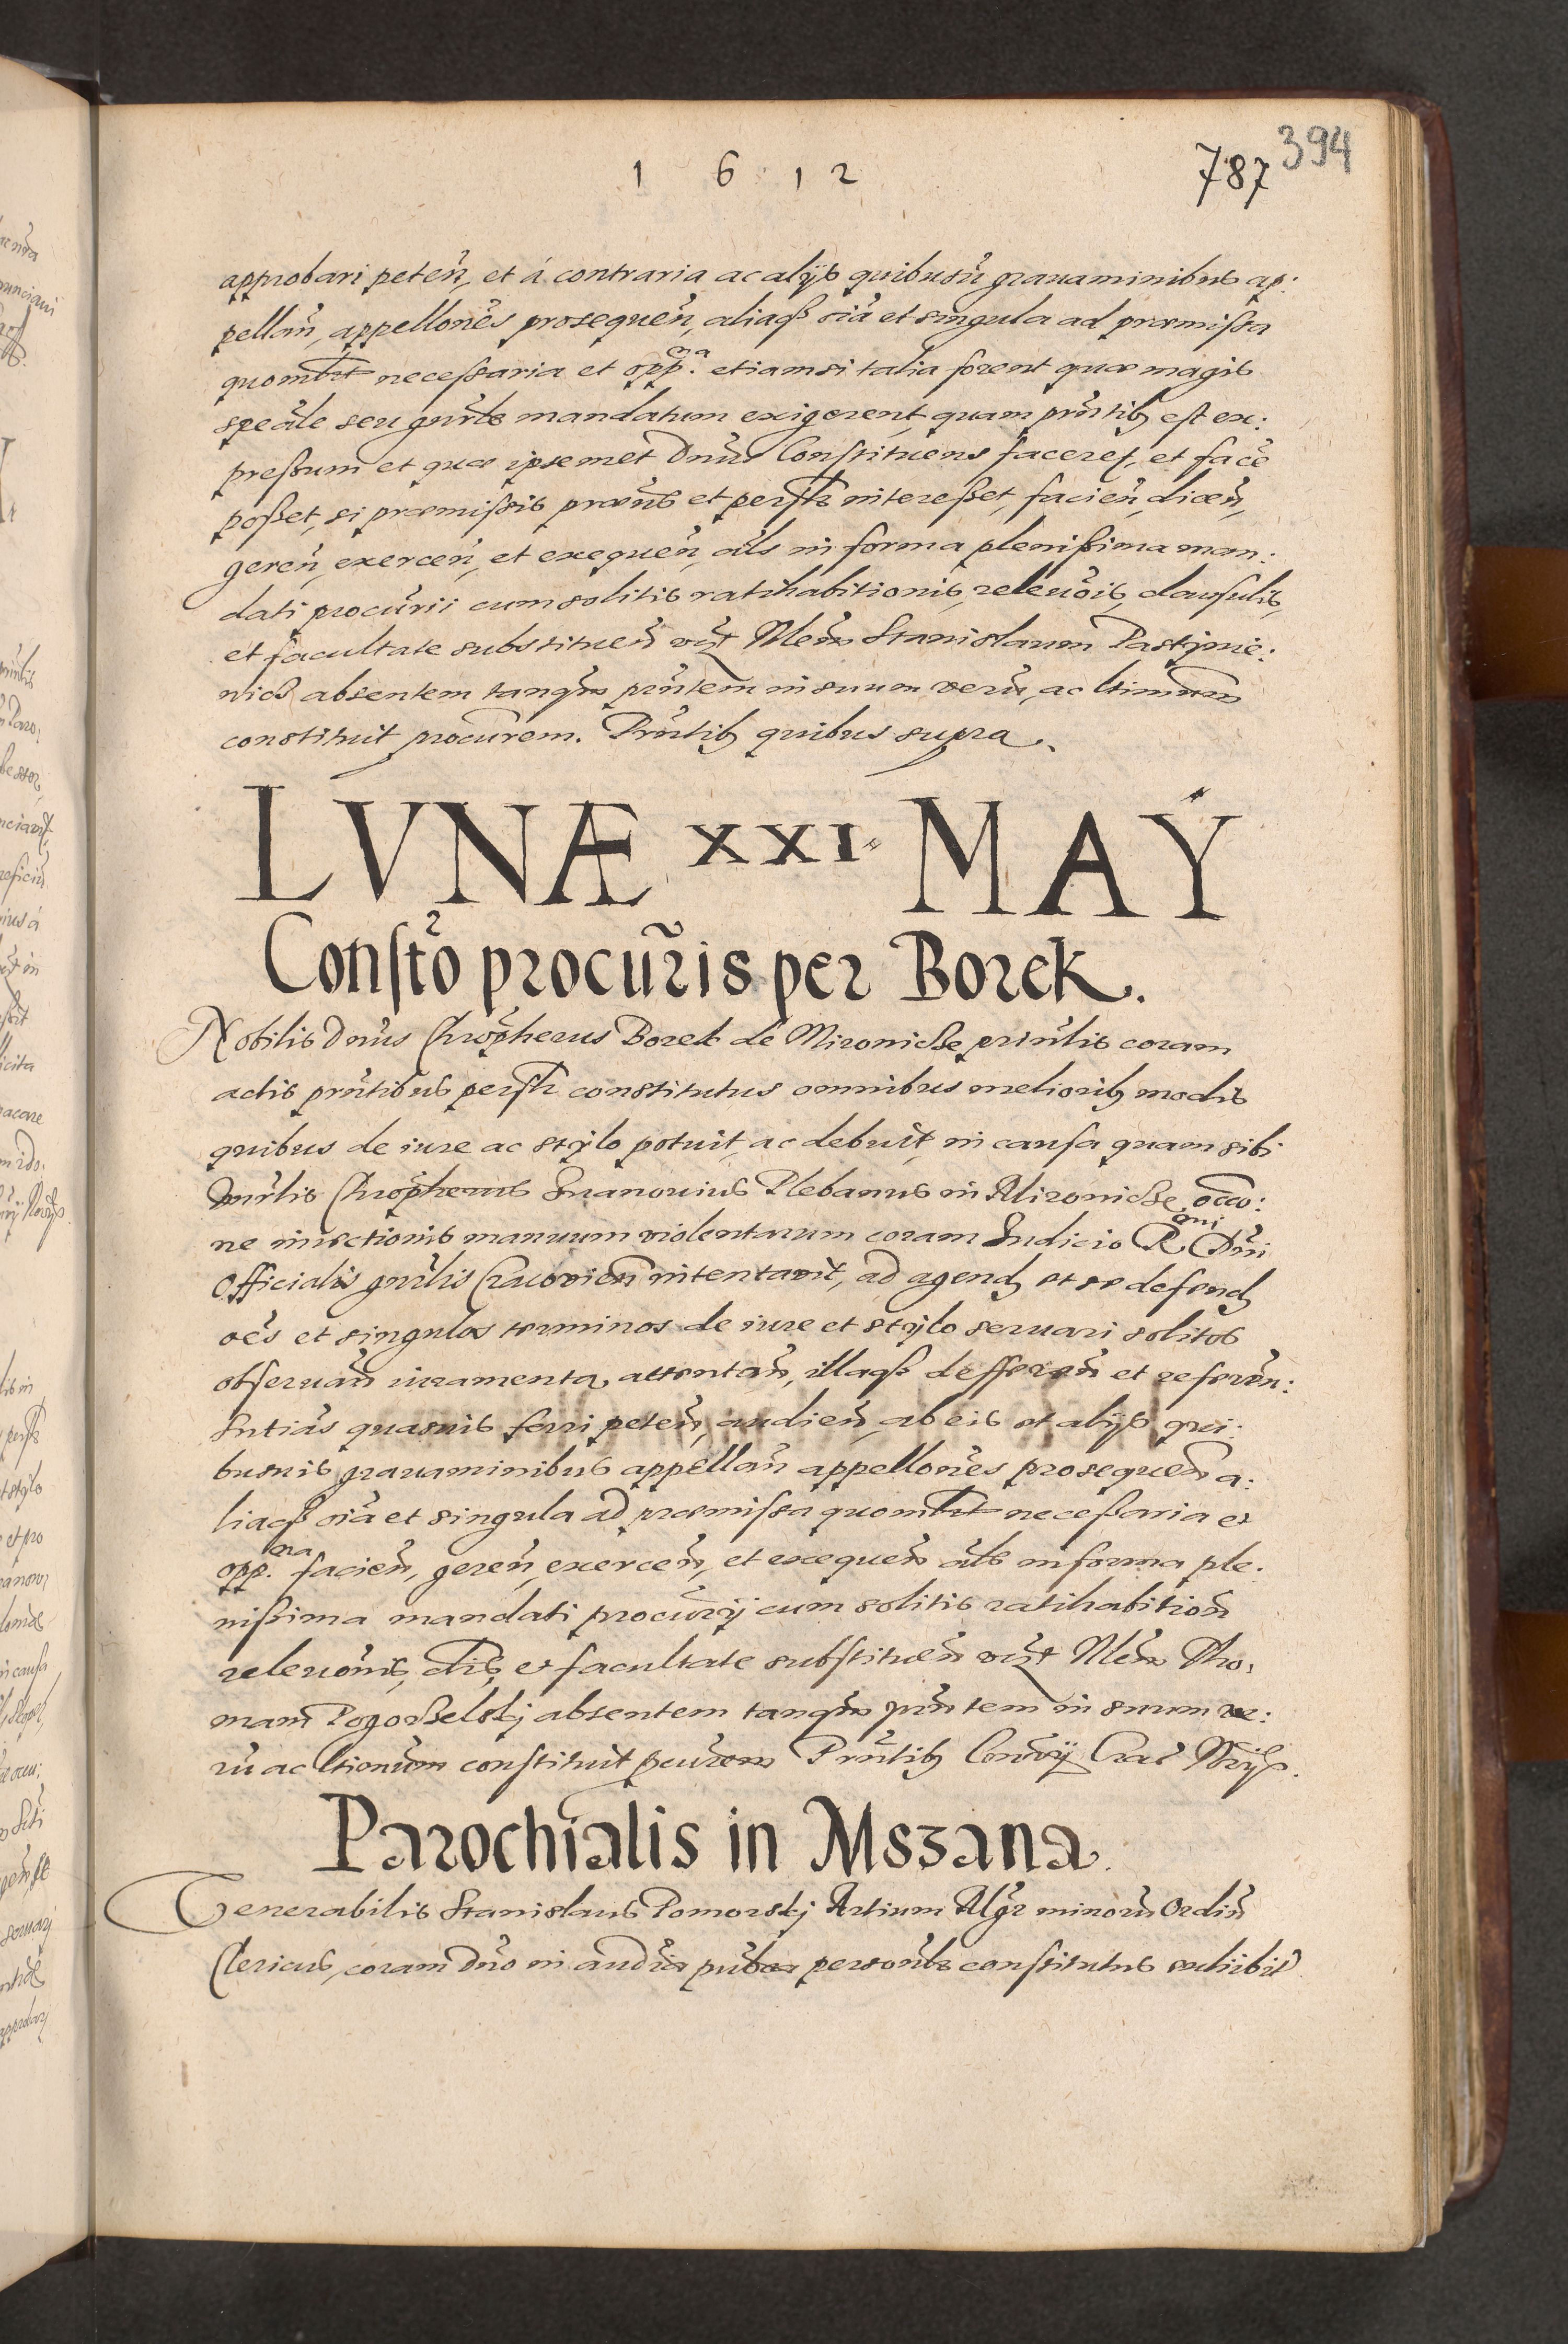 1 6 1 2
787 394
approbari peteñ, et á contraria ac alÿs quibusũ grauaminibus ap:
pellañ, appelloñes prosequeñ, aliasq₃ oĩa et singula ad præmissa
quomłt necessaria et opp.na etiamsi talia forent quæ magis
speãle seu gñrle mandatum exigerent quam pñtib₉ est ex:
pressum et quæ ipsemet Dñus Constituens faceret, et facẽ
posset, si præmissis præñs et persłr interesset, facieñ, diceñ,
gereñ, exerceñ, et exequeñ, als in forma plenissima man:
dati procũrii cum solitis ratihabitionis, releũois, clausulis,
et facultate substitueñ vĩz Nlem Stanislaum Pastjmie:
nicz absentem tanq̃m pñtem in suum verũ, ac ltimum
constituit procũrem. Pñtib₉ quibus supra.
LVNÆ XXI. MAŸ
Consto procũris per Borek.
Nobilis Dñus Chrõpherus Borek de Mironicze priñlis coram
actis pñtibus persłr constitutus omnibus meliorib₉ modis
quibus de iure ac stÿlo potuit, ac debuit, in causa quam sibi
Chrõpherus Plebanus in Mironicze occo:
ne iniectionis manuum violentarum coram Iudicio R.mi Dñi
Officialis gñrlis Cracovieñ intentavit, ad agend₉ et se defend₉
oẽs et singulos terminos de iure et stÿlo seruari solitos
obseruañ iuramenta, attentañ, illaq₃ defferreñ et refereñ:
Sntias quasuis ferri peteñ, audieñ, ab eis et alÿs qui:
busuis grauaminibus appellañ appelloñes prosequeñ a:
liasq₃ oĩa et singula ad præmissa quomłt necessaria et
opp.na facieñ, gereñ, exerceñ, et exequeñ als in forma ple:
nissima mandati procũrÿ cum solitis ratihabitioñ
releuoñis, clis, et facultate substitueñ vĩz Nlem Tho,
mam Pogorzelskj absentem tanq̃m pñtem in suum ve:
rũ ac ltimum constituit pcũrem Pñtib₉ Crac
Parochialis in Mszana.
Venerabilis Stanislaus Pomorskj Artium Mgr̃ minorũ Ordiñ
Clericus, coram Dño in audĩa publca personlr constitutus exhibũ